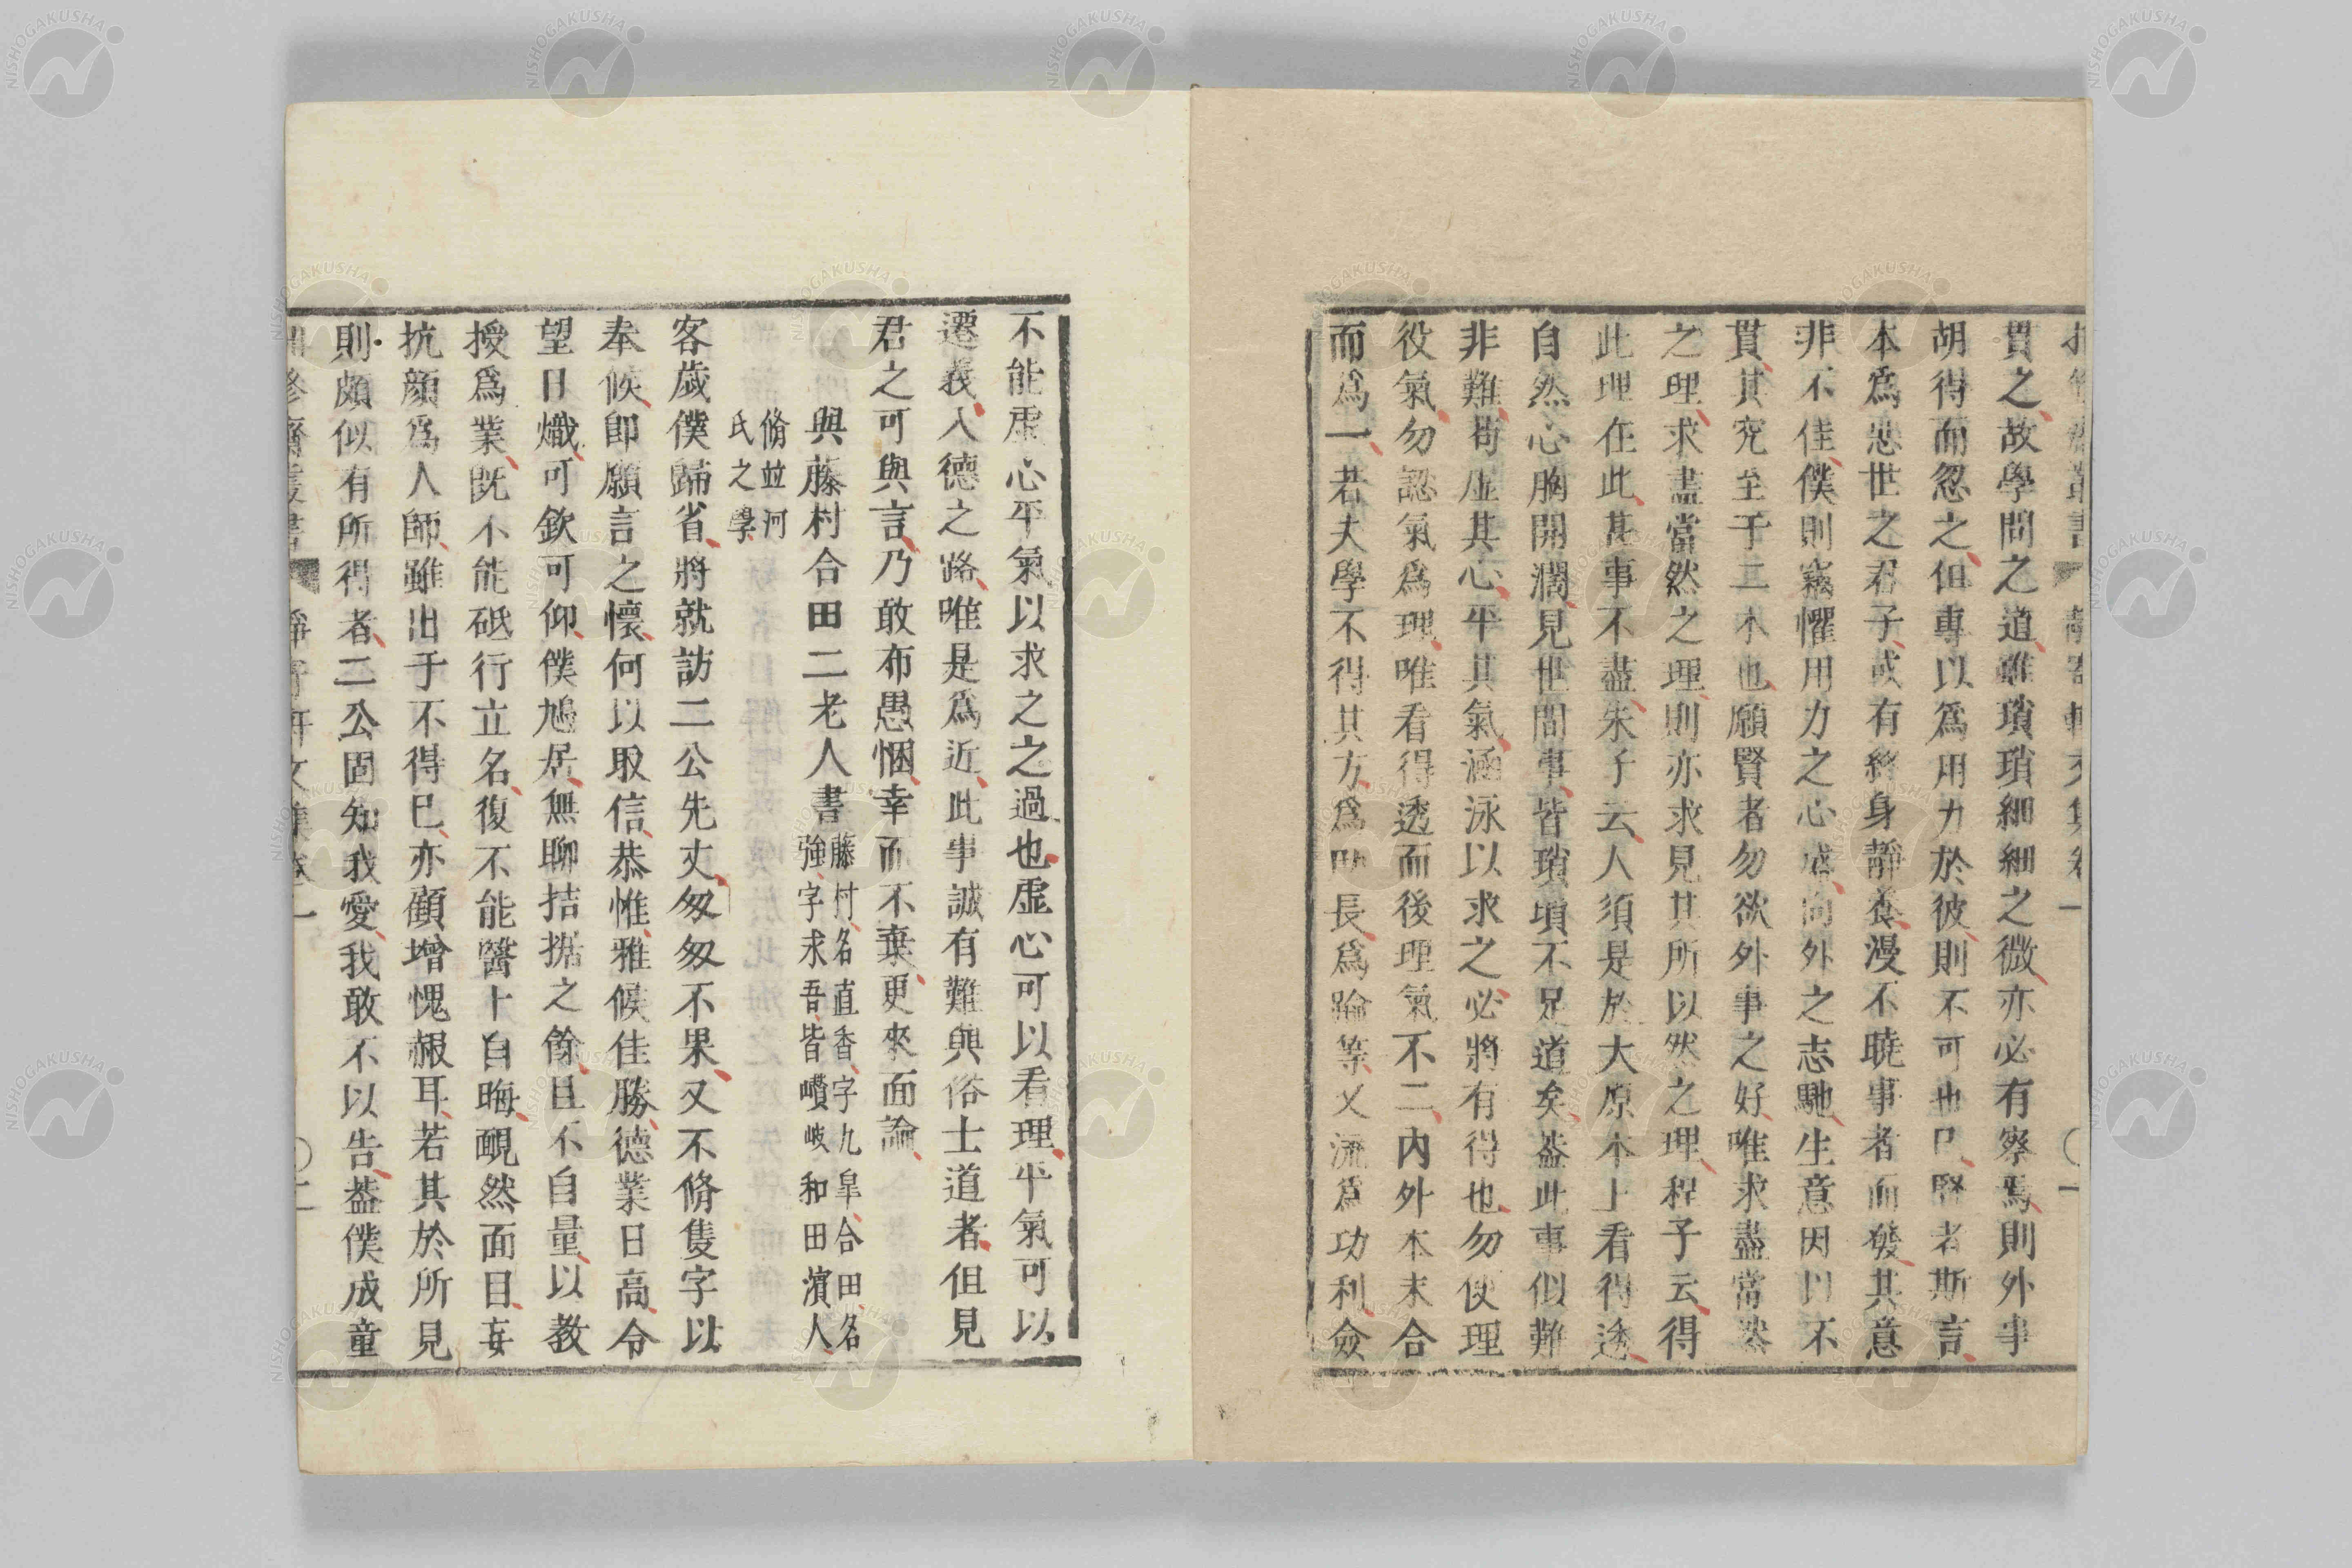 貫之故學問之道雖瑣瑣細細之微亦必有察焉則外事
胡得而忽之但專以爲用力於彼則不可也已賢者斯言
本爲悲世之君子或有終身靜養漫不曉事者而發其意
非不佳僕則竊懼用力之心盛向外之志馳生意因以不
貫其究至于二本也願賢者勿欲外事之好唯求盡當然
之理求盡當然之理則亦求見其所以然之理程子云得
此理在此甚事不盡朱子云人須是於大原本上看得透
自然心胸開濶見世間事皆瑣瑣不足道矣葢此事似難
非難苟虛其心平其氣涵泳以求之必將有得也勿使理
役氣勿認氣爲理唯看得透而後理氣不二內外本末合
而爲一若夫學不得其方爲助長爲踰等又流爲功利僉
不能虛心平氣以求之之過也虛心可以看理平氣可以
遷義入德之路唯是爲近此事誠有難與俗士道者但見
君之可與言乃敢布愚悃幸而不棄更來面論
與藤村合田二老人書
藤村名直香字九皐合田名
強字求吾皆讃岐和田濱人
脩並河
氏之學
客歲僕歸省將就訪二公先丈匆匆不果又不脩隻字以
奉候卽願言之懷何以取信恭惟雅候佳勝德業日高令
望日熾可欽可仰僕鳩居無聊拮据之餘且不自量以教
授爲業旣不能砥行立名復不能醫卜自晦靦然面目妄
抗顏爲人師雖出于不得已亦顧增愧赧耳若其於所見
則頗似有所得者二公固知我愛我敢不以告葢僕成童
靜寄軒文集卷一
〇二
〇一
NISHOGAKUSHA